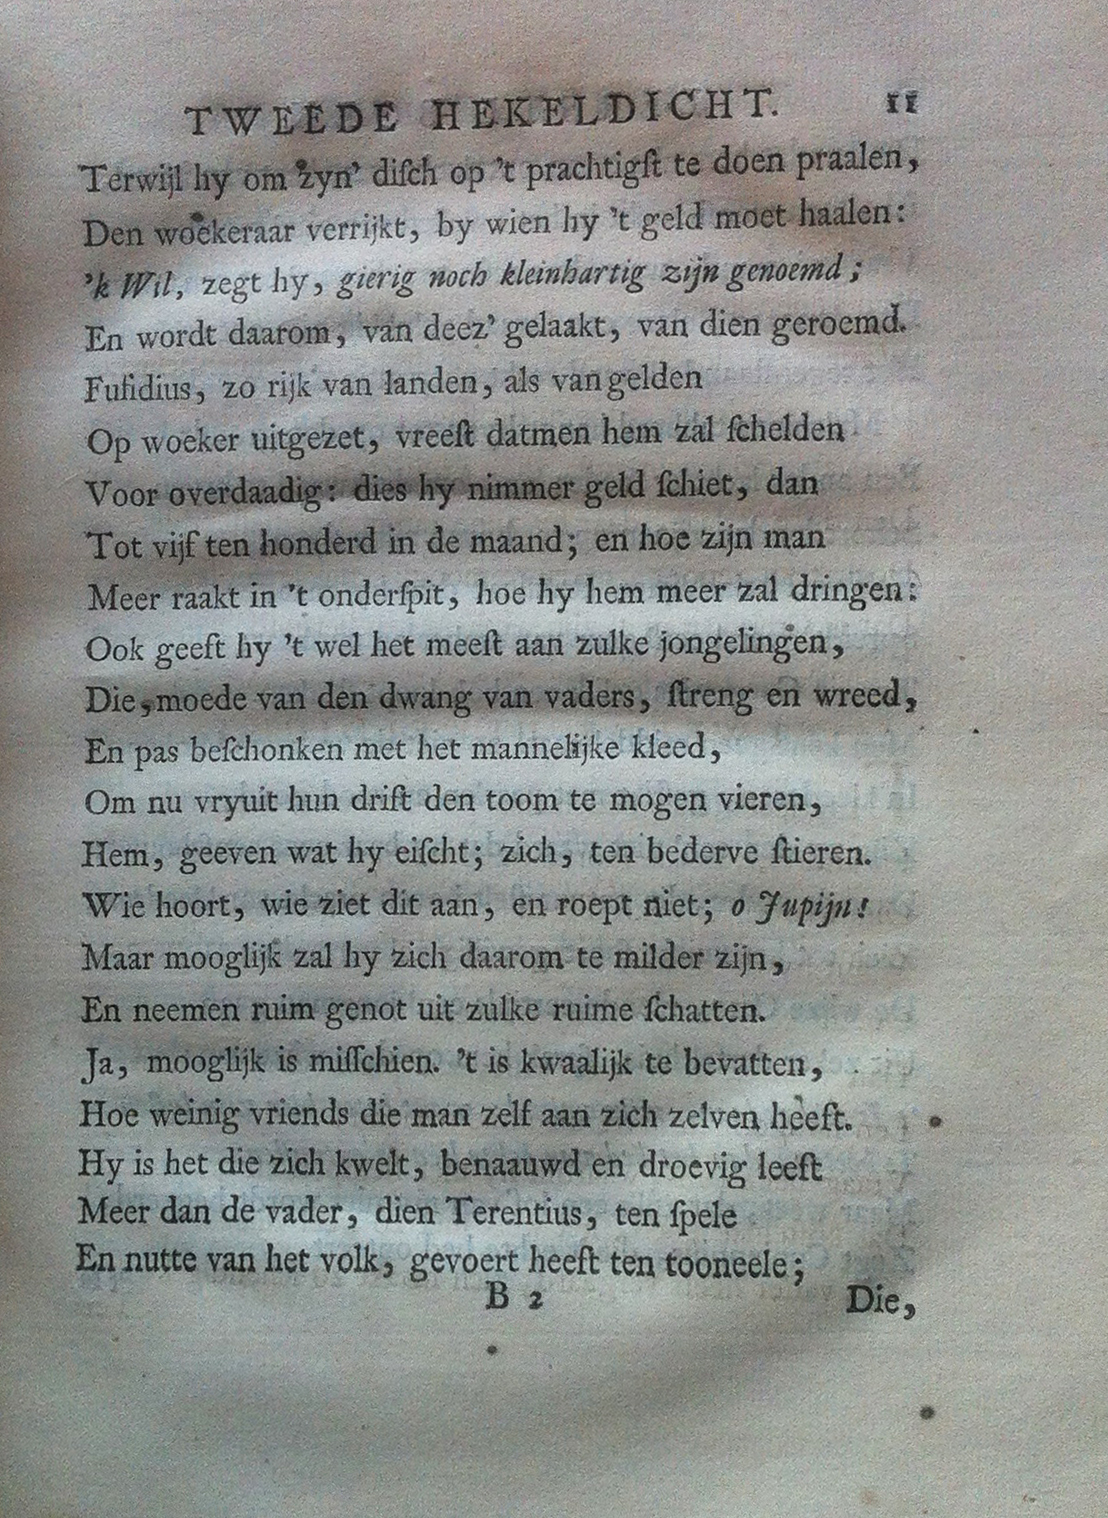 TWEEDE HEKELDICHT. 11
Terwijl hy om zyn' diſch op 't prachtigſt te doen praalen,
Den woekeraar verrijkt, by wien hy 't geld moet haalen:
'k Wil, zegt hy, gierig noch kleinhartig zijn genoemd;
En wordt daarom, van deez' gelaakt, van dien geroemd.
Fuſidius, zo rijk van landen, als van gelden
Op woeker uitgezet, vreeſt datmen hem zal ſchelden
Voor overdaadig: dies hy nimmer geld ſchiet, dan
Tot vijf ten honderd in de maand; en hoe zijn man
Meer raakt in 't onderſpit, hoe hy hem meer zal dringen:
Ook geeft hy 't wel het meeſt aan zulke jongelingen,
Die, moede van den dwang van vaders, ſtreng en wreed,
En pas beſchonken met het mannelijke kleed,
Om nu vryuit hun drift den toom te mogen vieren,
Hem, geeven wat hy eiſcht; zich, ten bederve ſtieren.
Wie hoort, wie ziet dit aan, en roept niet; o Jupijn!
Maar mooglijk zal hy zich daarom te milder zijn,
En neemen ruim genot uit zulke ruime ſchatten.
Ja, mooglijk is miſſchien. 't is kwaalijk te bevatten,
Hoe weinig vriends die man zelf aan zich zelven heeft.
Hy is het die zich kwelt, benaauwd en droevig leeft
Meer dan de vader, dien Terentius, ten ſpele
En nutte van het volk, gevoert heeft ten tooneele;
B 2 Die,